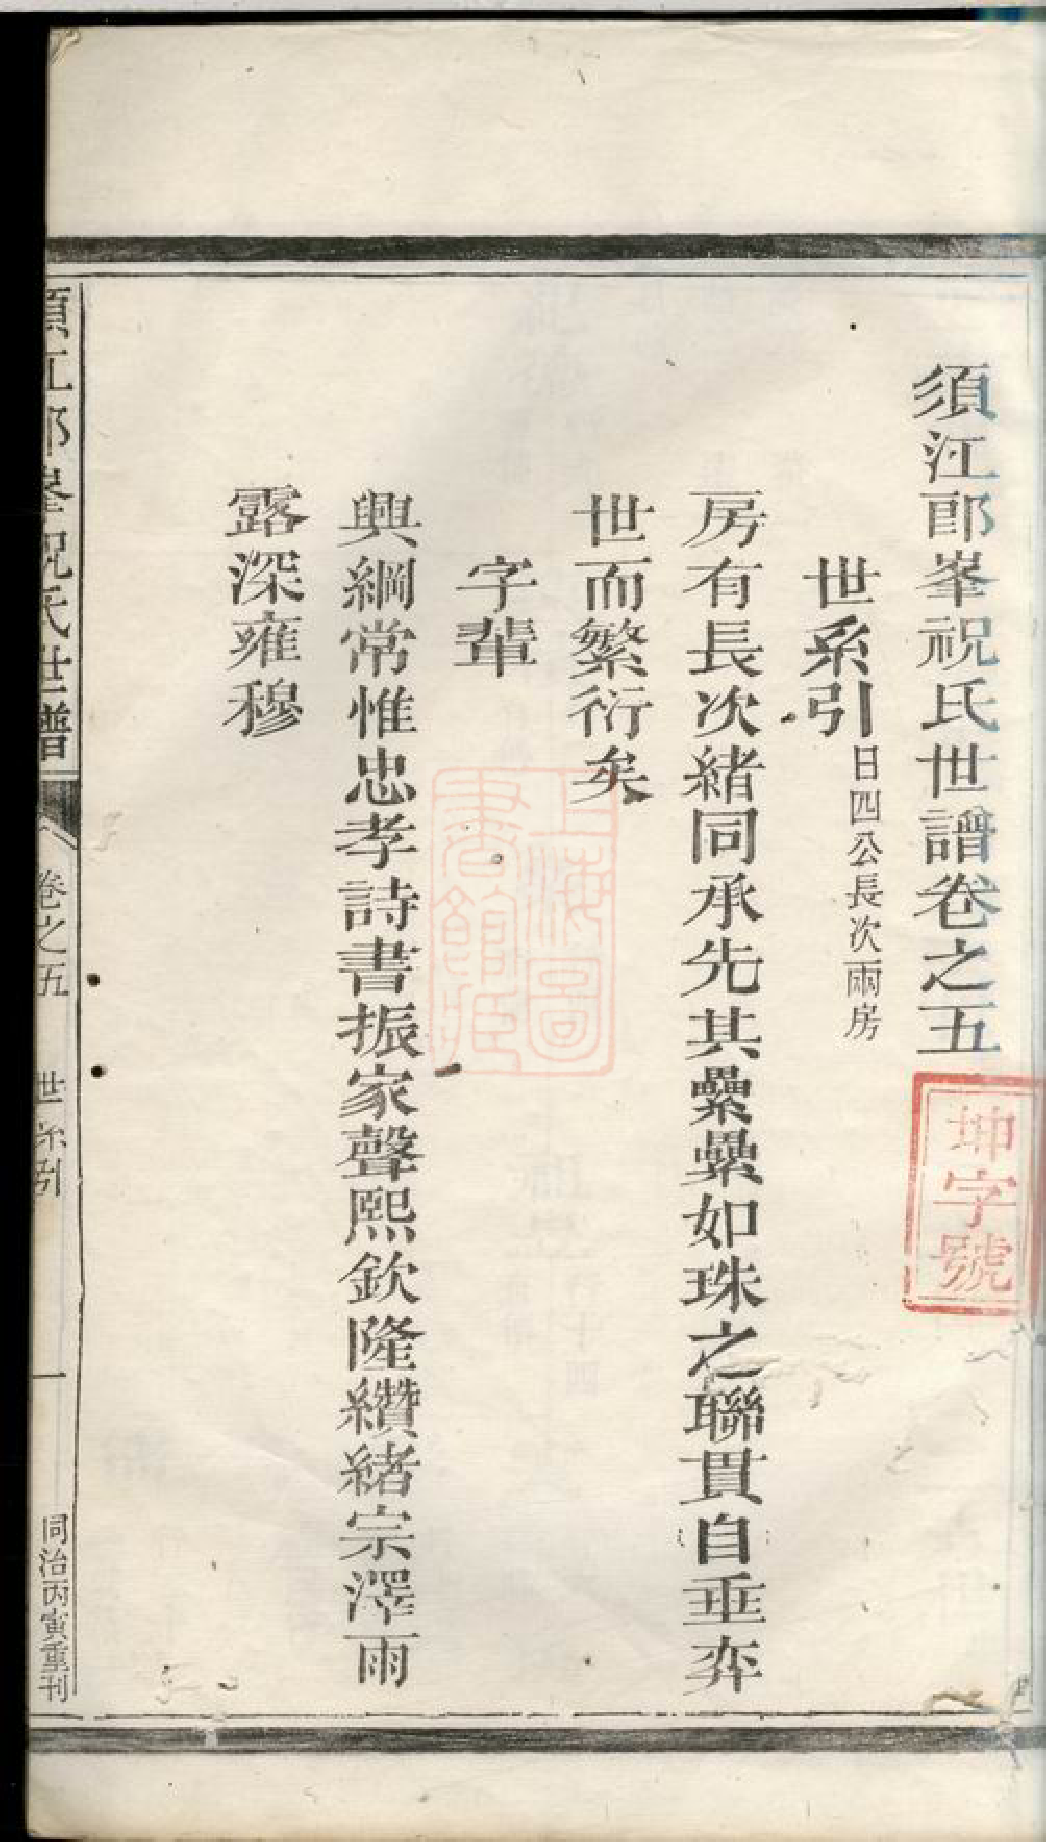 須江郎峯祝氏世譜卷之五
坤字號
世系引 日四公長次兩房
房有長次緒同承先其纍纍如珠之聯貫自垂弈
世而繁衍矣
字輩
興綱常惟忠孝詩書振家聲熙欽隆纘緒宗澤雨
露深雍穆
上海圖書館藏
須江郎峯祝氏世譜
卷之五
世系引
一
同治丙寅重刊